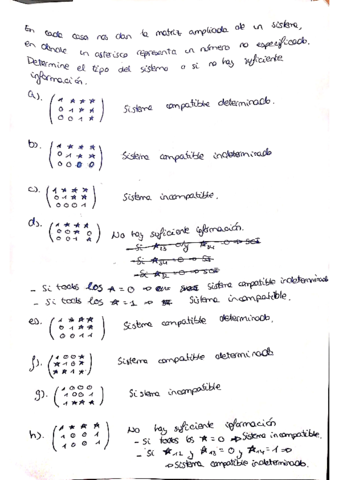 En cada caso nos dan la matriz ampliada de un sistema,
en donde un asterisco representa un número no especificado.
Determine el tipo del sistema o si no hay suficiente
información.
a). (1 * * *
0 1 * *
0 0 1 *) Sistema compatible determinado.
b). (1 * * *
0 1 * *
0 0 0 0) Sistema compatible indeterminado
c). (1 * * *
0 1 * *
0 0 0 1) Sistema incompatible.
d). (1 * * *
0 0 * 0
0 0 1 *) No hay suficiente información.
- Si todos los * = 0 ⇒ sistema compatible indeterminado
- Si todos los * = 1 ⇒ Sistema incompatible.
e). (1 * * *
0 1 * *
0 0 1 1) Sistema compatible determinado.
f). (1 0 0 *
* 1 0 *
* * 1 *) Sistema compatible determinado
g). (1 0 0 0
1 0 0 1
1 * * *) Sistema incompatible
h). (1 * * *
1 0 0 1
1 0 0 1) No hay suficiente información
- Si todos los * = 0 ⇒ Sistema incompatible.
- Si *12 y *13 = 0 y *14 = 1 ⇒
⇒ Sistema compatible indeterminado.